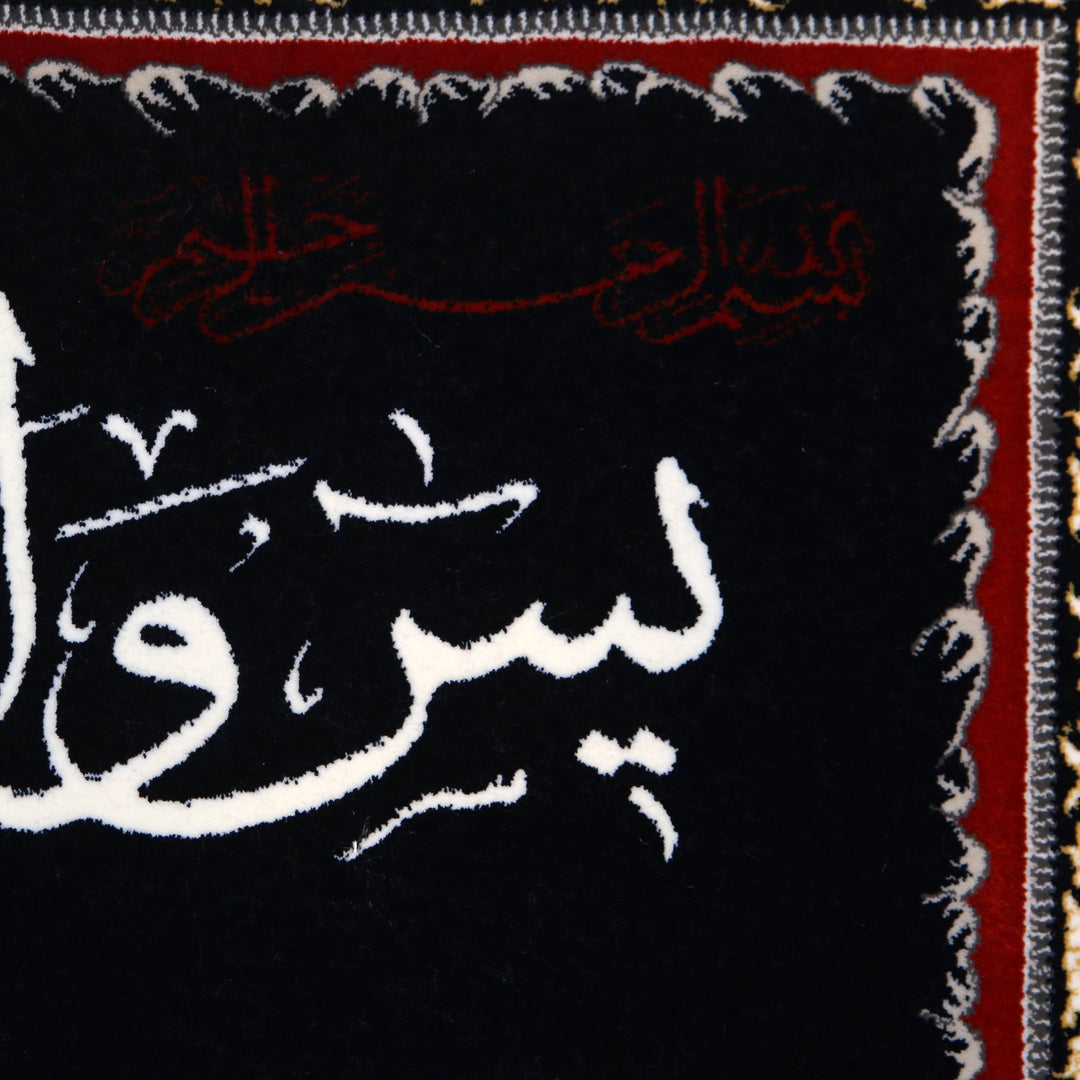 بسم الله الرحمن الرحيم
يس وا